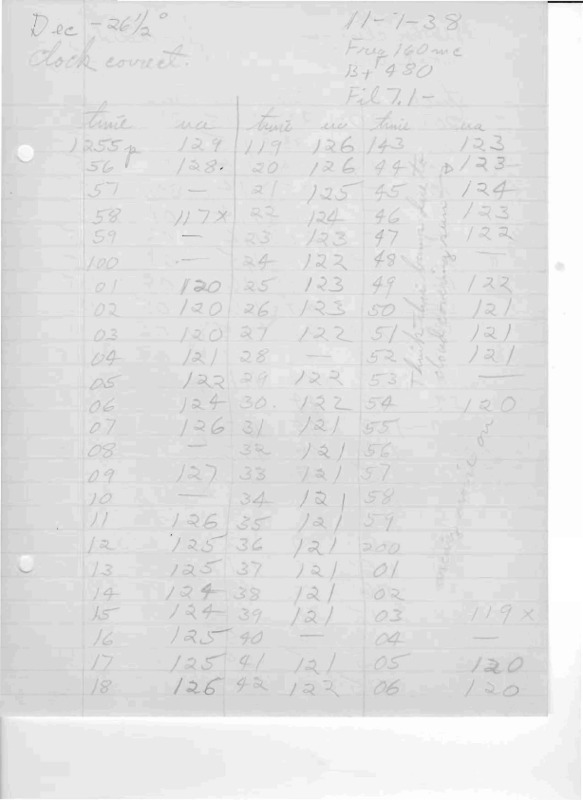 Dec -26 1/2°
11-7-38
Clock correct.
Freq 160 mc
B+ 480
Fil 7.1-
time ua time ua time ua
1255p 129 119 126 143 123
56 128. 20 126 44 123
57 — 21 125 45 124
58 117x 22 124 46 123
59 — 23 123 47 122
100 — 24 122 48 —
01 120 25 123 49 122
02 120 26 123 50 121
03 120 27 122 51 121
04 121 28 — 52 121
05 122 29 122 53 —
06 124 30. 122 54 120
07 126 31 121 55
08 — 32 121 56
09 127 33 121 57
10 — 34 121 58
11 126 35 121 59
12 125 36 121 200
13 125 37 121 01
14 124 38 121 02
15 124 39 121 03 119x
16 125 40 — 04 —
17 125 41 121 05 120
18 126 42 122 06 120
Think this hump due to
cloud covering sun
noise on